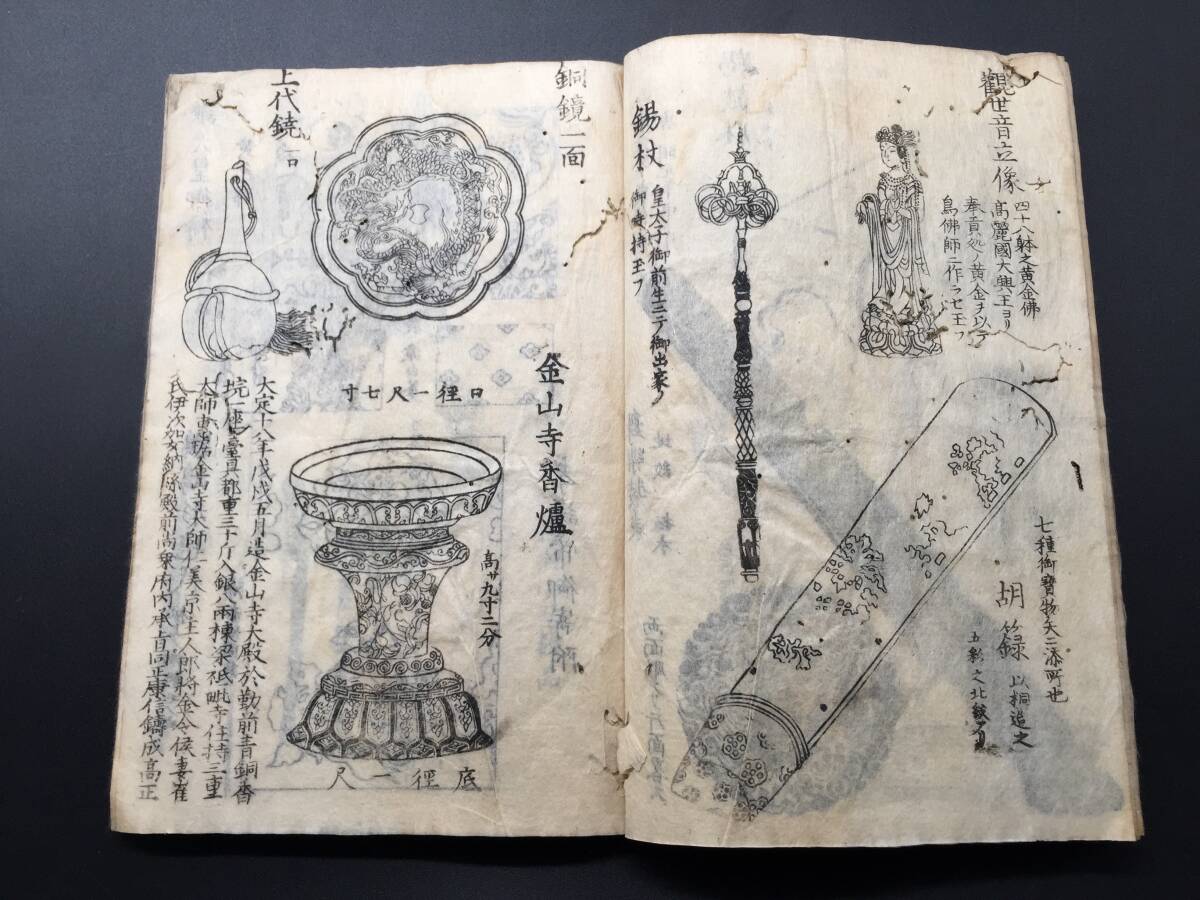 觀世音立像
四十八躰之黄金佛
高麗國大興王ヨリ
奉貢処ノ黄金ヲ以テ
鳥佛師ニ作ラセ玉フ
七種御寳物矢二添所也
胡籙
以桐造之
五彩之北
錫杖
皇太子御前生ニテ御出家ノ
御時持玉フ
銅鏡一面
上代鐃 一口
金山寺香爐
口徑一尺七寸
高サ九寸二分
底徑一尺
大定十八年戊戌五月造金山寺大殿於勤前青銅香
垸一座臺具都重三十斤入銀八兩棟梁
寺住持三重
大師惠琚金山寺大師仁美京主人郎將金令候妻崔
氏伊次加女納絲殿前尚乘府內承旨同正康信鑄成高正